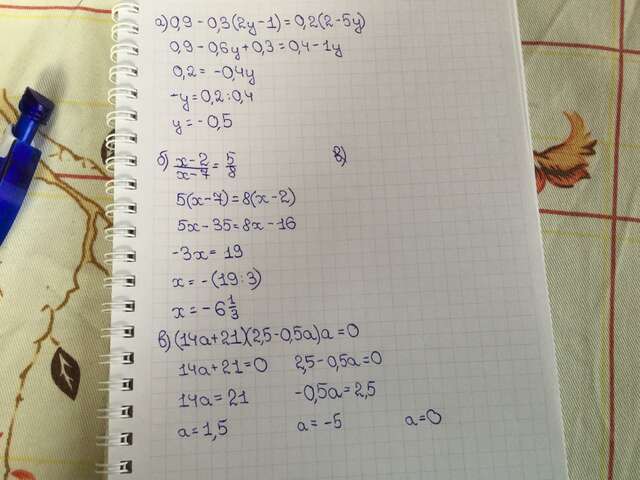 а) 0,9 - 0,3(2y-1) = 0,2(2-5y)
0,9 - 0,6y + 0,3 = 0,4 - 1y
0,2 = -0,4y
-y = 0,2 : 0,4
y = -0,5
б) x-2/x-7 = 5/8 в)
5(x-7) = 8(x-2)
5x - 35 = 8x - 16
-3x = 19
x = -(19:3)
x = -6 1/3
в) (14a+21)(2,5-0,5a)a=0
14a+21=0 2,5-0,5a=0
14a=21 -0,5a=2,5
a=1,5 a=-5 a=0